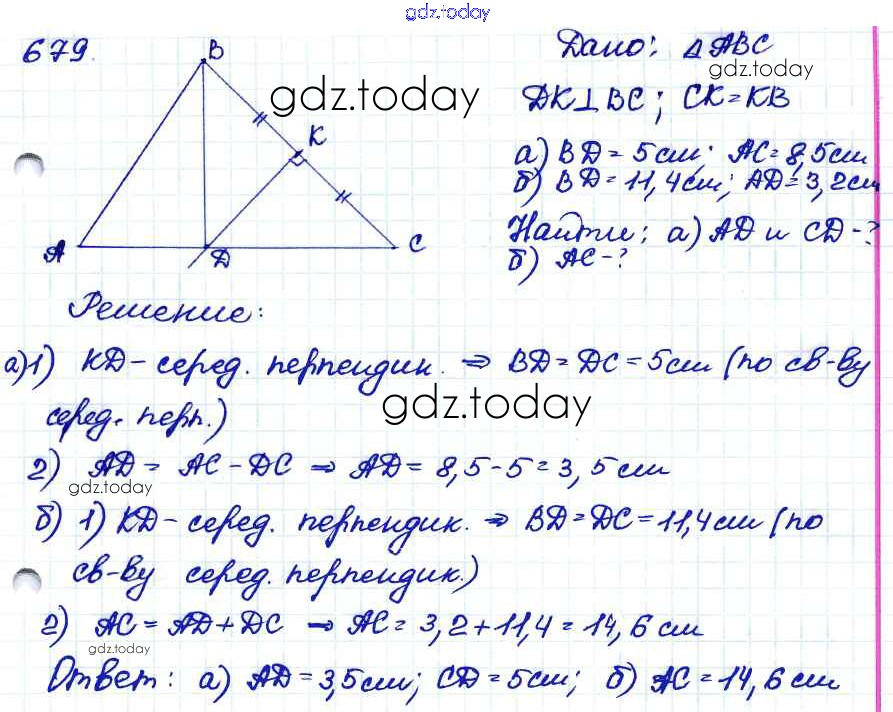 gdz.today
679.
Дано: △ABC
gdz.today
DK⊥BC; CK=KB
gdz.today
а) BD=5см; AC=8,5см
б) BD=11,4см; AD=3,2см
Найти: а) AD и CD-?
б) AC-?
B
K
A
D
C
Решение:
а)1) KD-серед. перпендик. ⇒ BD=DC=5см (по св-ву
серед. перп.)
gdz.today
2) AD = AC-DC ⇒ AD= 8,5-5=3,5см
gdz.today
б) 1) KD-серед. перпендик. ⇒ BD=DC=11,4см (по
св-ву серед. перпендик.)
2) AC = AD+DC ⇒ AC= 3,2+11,4=14,6см
gdz.today
Ответ: а) AD=3,5см; CD=5см; б) AC=14,6см